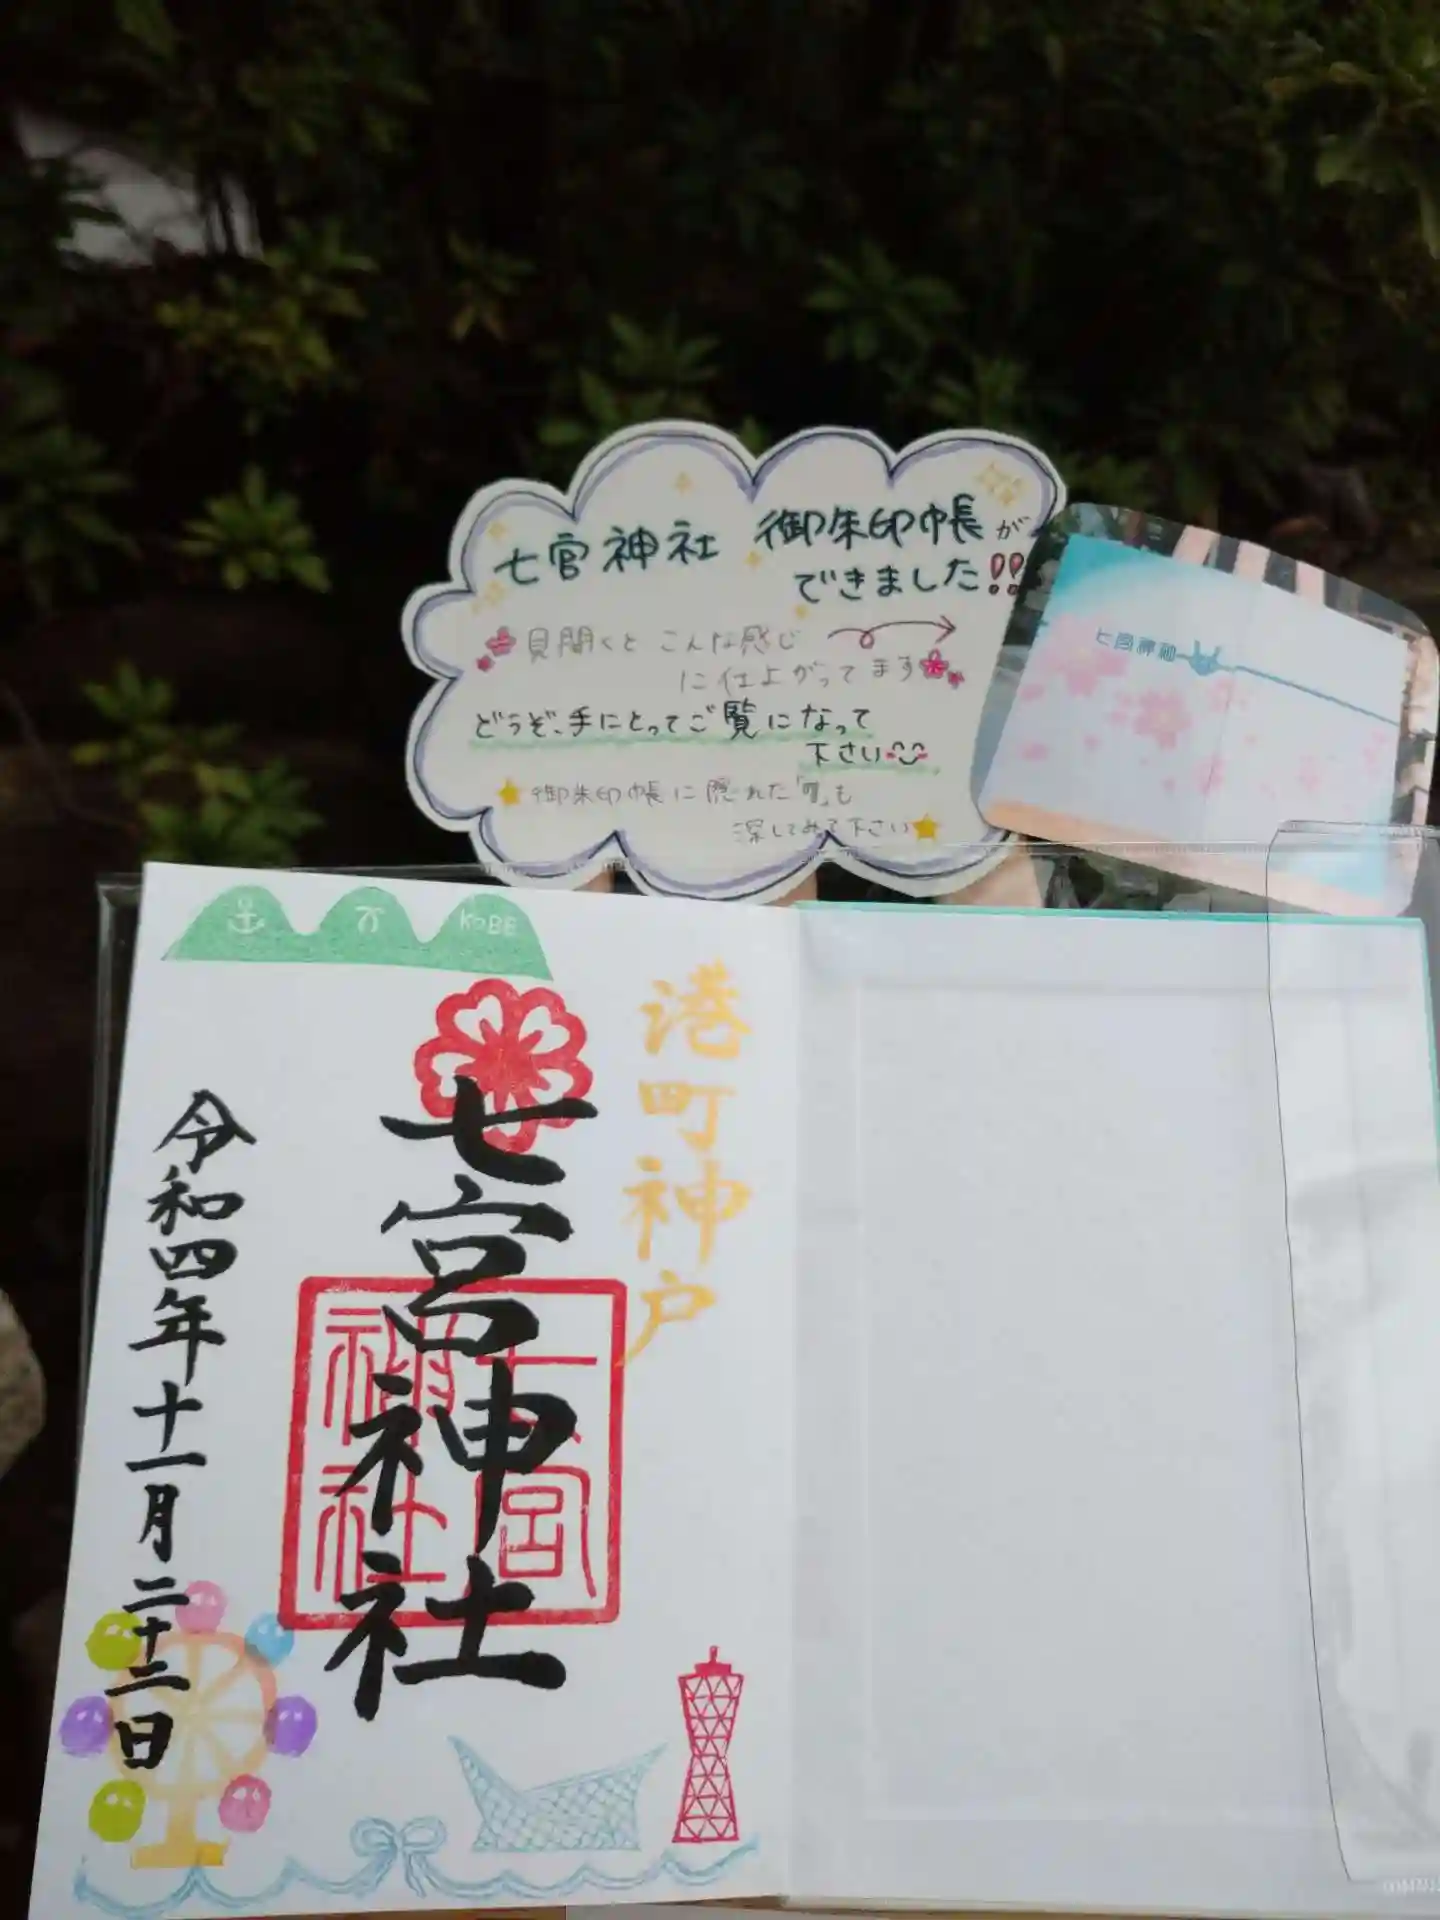 七宮神社 御朱印帳が
できました!!
見開くと こんな感じ
に仕上がってます
どうぞ、手にとってご覧になって
下さい
御朱印帳に隠れた「も
探してみて下さい
七宮神社
KOBE
港町神戸
七宮神社
七宮
神社
令和四年十一月二十三日